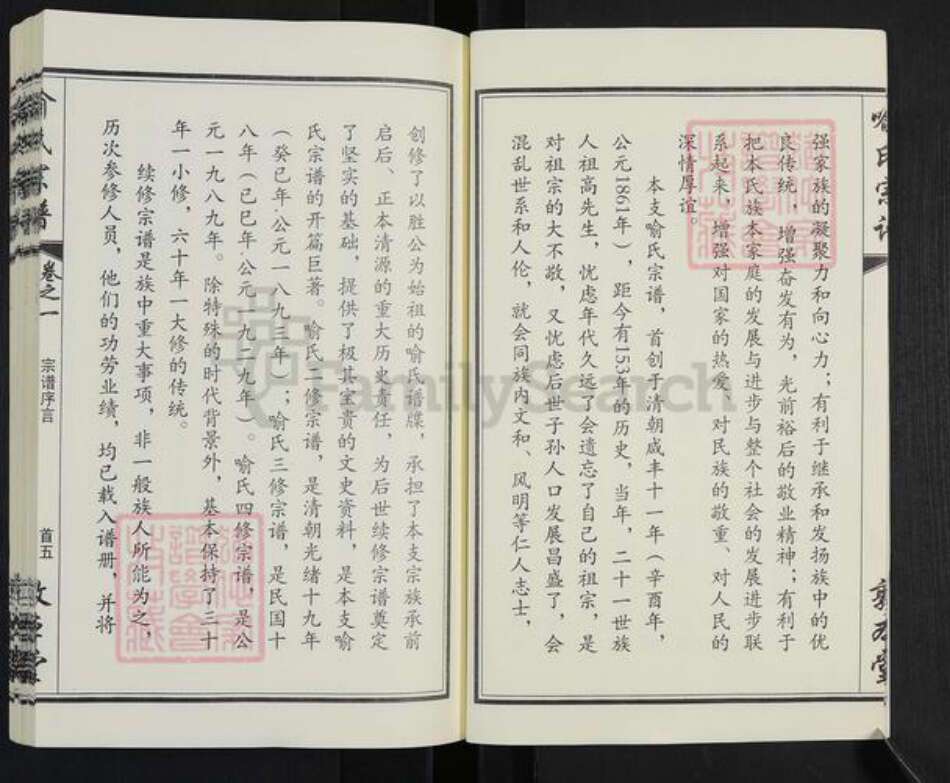 喻氏宗谱
强家族的凝聚力和向心力；有利于继承和发扬族中的优
良传统，增强奋发有为，光前裕后的敬业精神；有利于
把本氏族本家庭的发展与进步与整个社会的发展进步联
系起来，增强对国家的热爱、对民族的敬重、对人民的
深情厚谊。
本支喻氏宗谱，首创于清朝咸丰十一年（辛酉年，
公元1861年），距今有153年的历史，当年，二十一世族
人祖高先生，忧虑年代久远了会遗忘了自己的祖宗，是
对祖宗的大不敬，又忧虑后世子孙人口发展昌盛了，会
混乱世系和人伦，就会同族内文和、风明等仁人志士，
创修了以胜公为始祖的喻氏谱牒，承担了本支宗族承前
启后、正本清源的重大历史责任，为后世续修宗谱奠定
了坚实的基础，提供了极其宝贵的文史资料，是本支喻
氏宗谱的开篇巨著。喻氏二修宗谱，是清朝光绪十九年
（癸巳年·公元一八九三年）；喻氏三修宗谱，是民国十
八年（已巳年·公元一九二九年）。喻氏四修宗谱，是公
元一九八九年。除特殊的时代背景外，基本保持了三十
年一小修，六十年一大修的传统。
续修宗谱是族中重大事项，非一般族人所能为之，
历次参修人员，他们的功劳业绩，均已载入谱册，并将
卷之一
宗谱序言
首五
FamilySearch